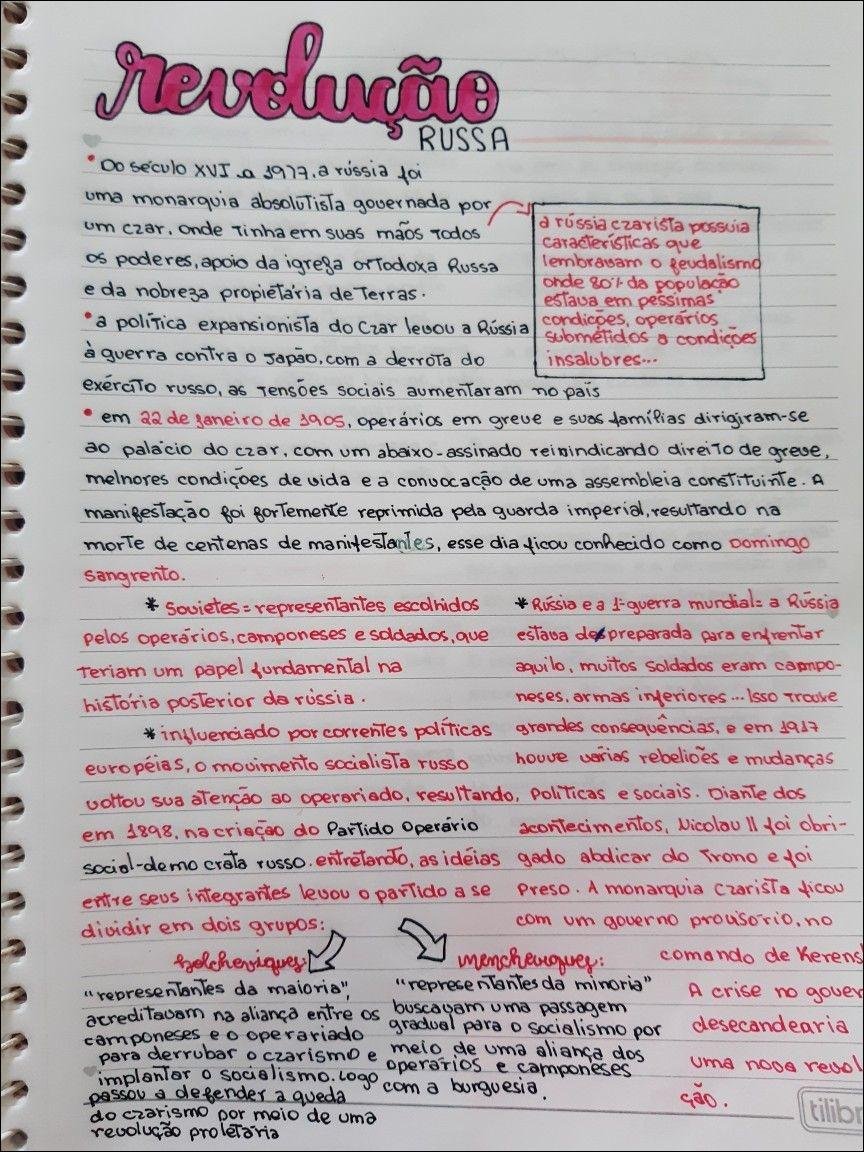 revolução
RUSSA
• Do século XVI a 1977, a rússia foi
uma monarquia absolutista governada por
um czar, onde tinha em suas mãos todos
os poderes, apoio da igreza ortodoxa Russa
e da nobreza propietária de terras.
a rússia czarista possuia
características que
lembravam o feudalismo
onde 80% da população
estava em péssimas
condições, operários
submétidos a condições
insalubres...
• a política expansionista do czar levou a Rússia
à guerra contra o Japão, com a derrota do
exército russo, as tensões sociais aumentaram no país
• em 22 de janeiro de 1905, operários em greve e suas famílias dirigiram-se
ao palácio do czar, com um abaixo-assinado reinindicando direito de greve,
melhores condições de vida e a convocação de uma assembleia constituinte. A
manifestação foi fortemente reprimida pela guarda imperial, resultando na
morte de centenas de manifestantes, esse dia ficou conhecido como Domingo
sangrento.
* Sovietes = representantes escolhidos
pelos operários, camponeses e soldados, que
teriam um papel fundamental na
história posterior da rússia.
* influenciado por correntes políticas
européias, o movimento socialista russo
voltou sua atenção ao operariado, resultando,
em 1898, na criação do Partido Operário
social-democrata russo. entretando, as idéias
entre seus integrantes levou o partido a se
dividir em dois grupos:
* Rússia e a 1ª guerra mundial = a Rússia
estava despreparada para enfrentar
aquilo, muitos soldados eram campo-
neses, armas inferiores... Isso trouxe
grandes consequências, e em 1917
houve várias rebeliões e mudanças
políticas e sociais. Diante dos
acontecimentos, Nicolau II foi obri-
gado abdicar do trono e foi
preso. A monarquia czarista ficou
com um governo provisório, no
comando de Kerens
A crise no gover
desecandearia
uma nova revol
ção.
bolcheviques:
"representantes da maioria",
acreditavam na aliança entre os
camponeses e o operariado
para derrubar o czarismo e
implantar o socialismo. Logo
passou a defender a queda
do czarismo por meio de uma
revolução proletária
mencheviques:
"representantes da minoria"
buscavam uma passagem
gradual para o socialismo por
meio de uma aliança dos
operários e camponeses
com a burguesia.
tilibr